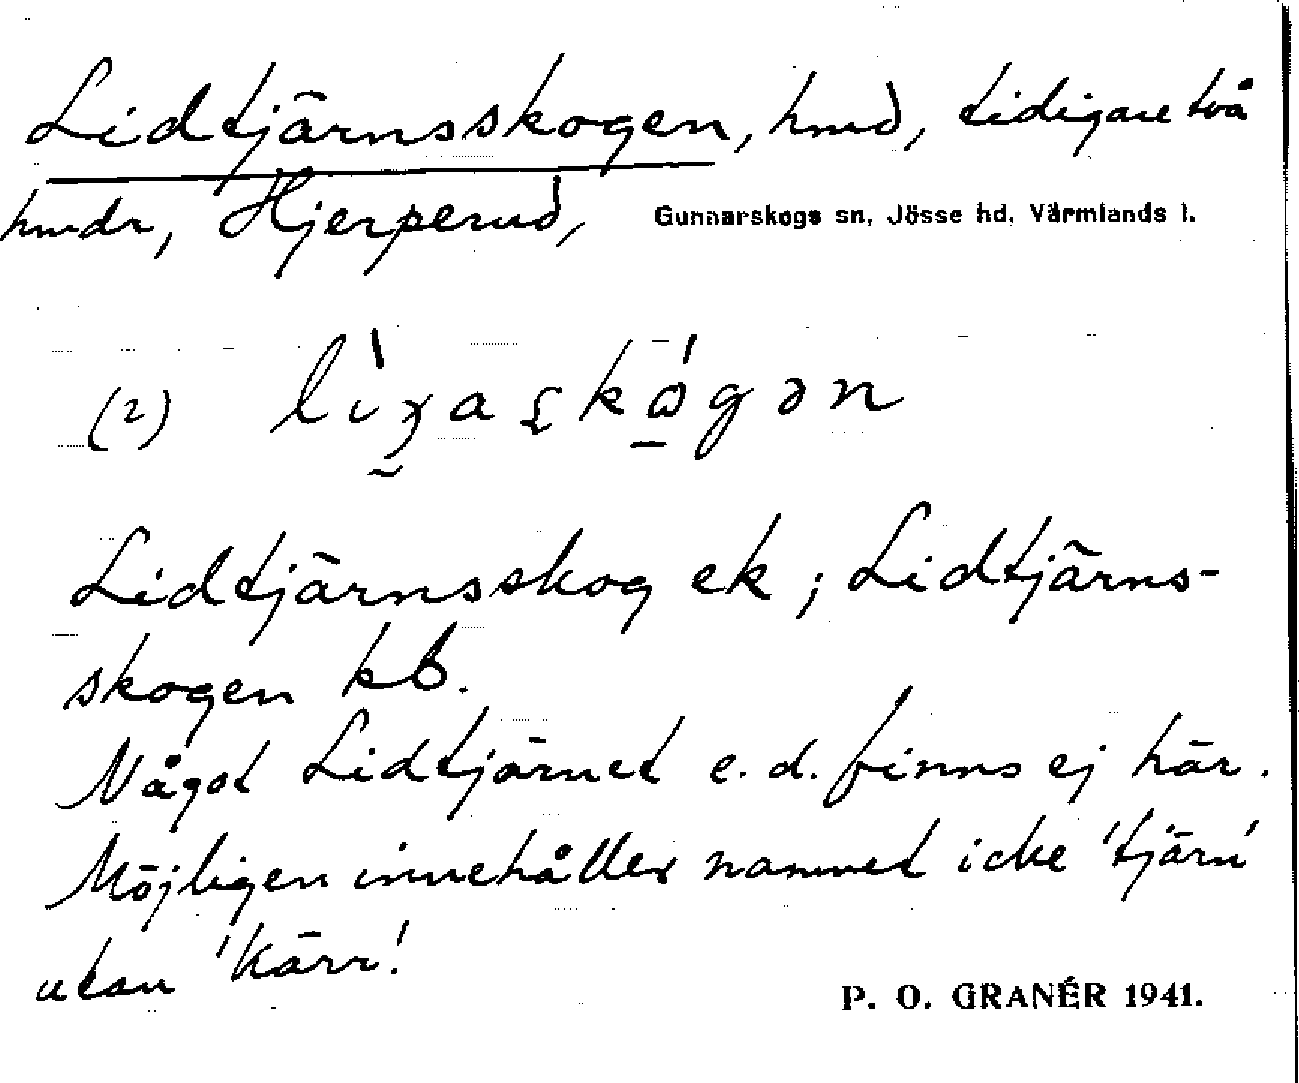 Lidtjärnsskogen, hmd, tidigare två
hmdr, Hjerperud, Gunnarskogs sn, Jösse hd, Värmlands l.
(2)
Lidtjärnsskog ek; Lidtjärns-
skogen kb.
Något Lidtjärnet e.d. finns ej här.
Möjligen innehåller namnet icke 'tjärn'
utan 'kärr'.
P. O. GRANÉR 1941.